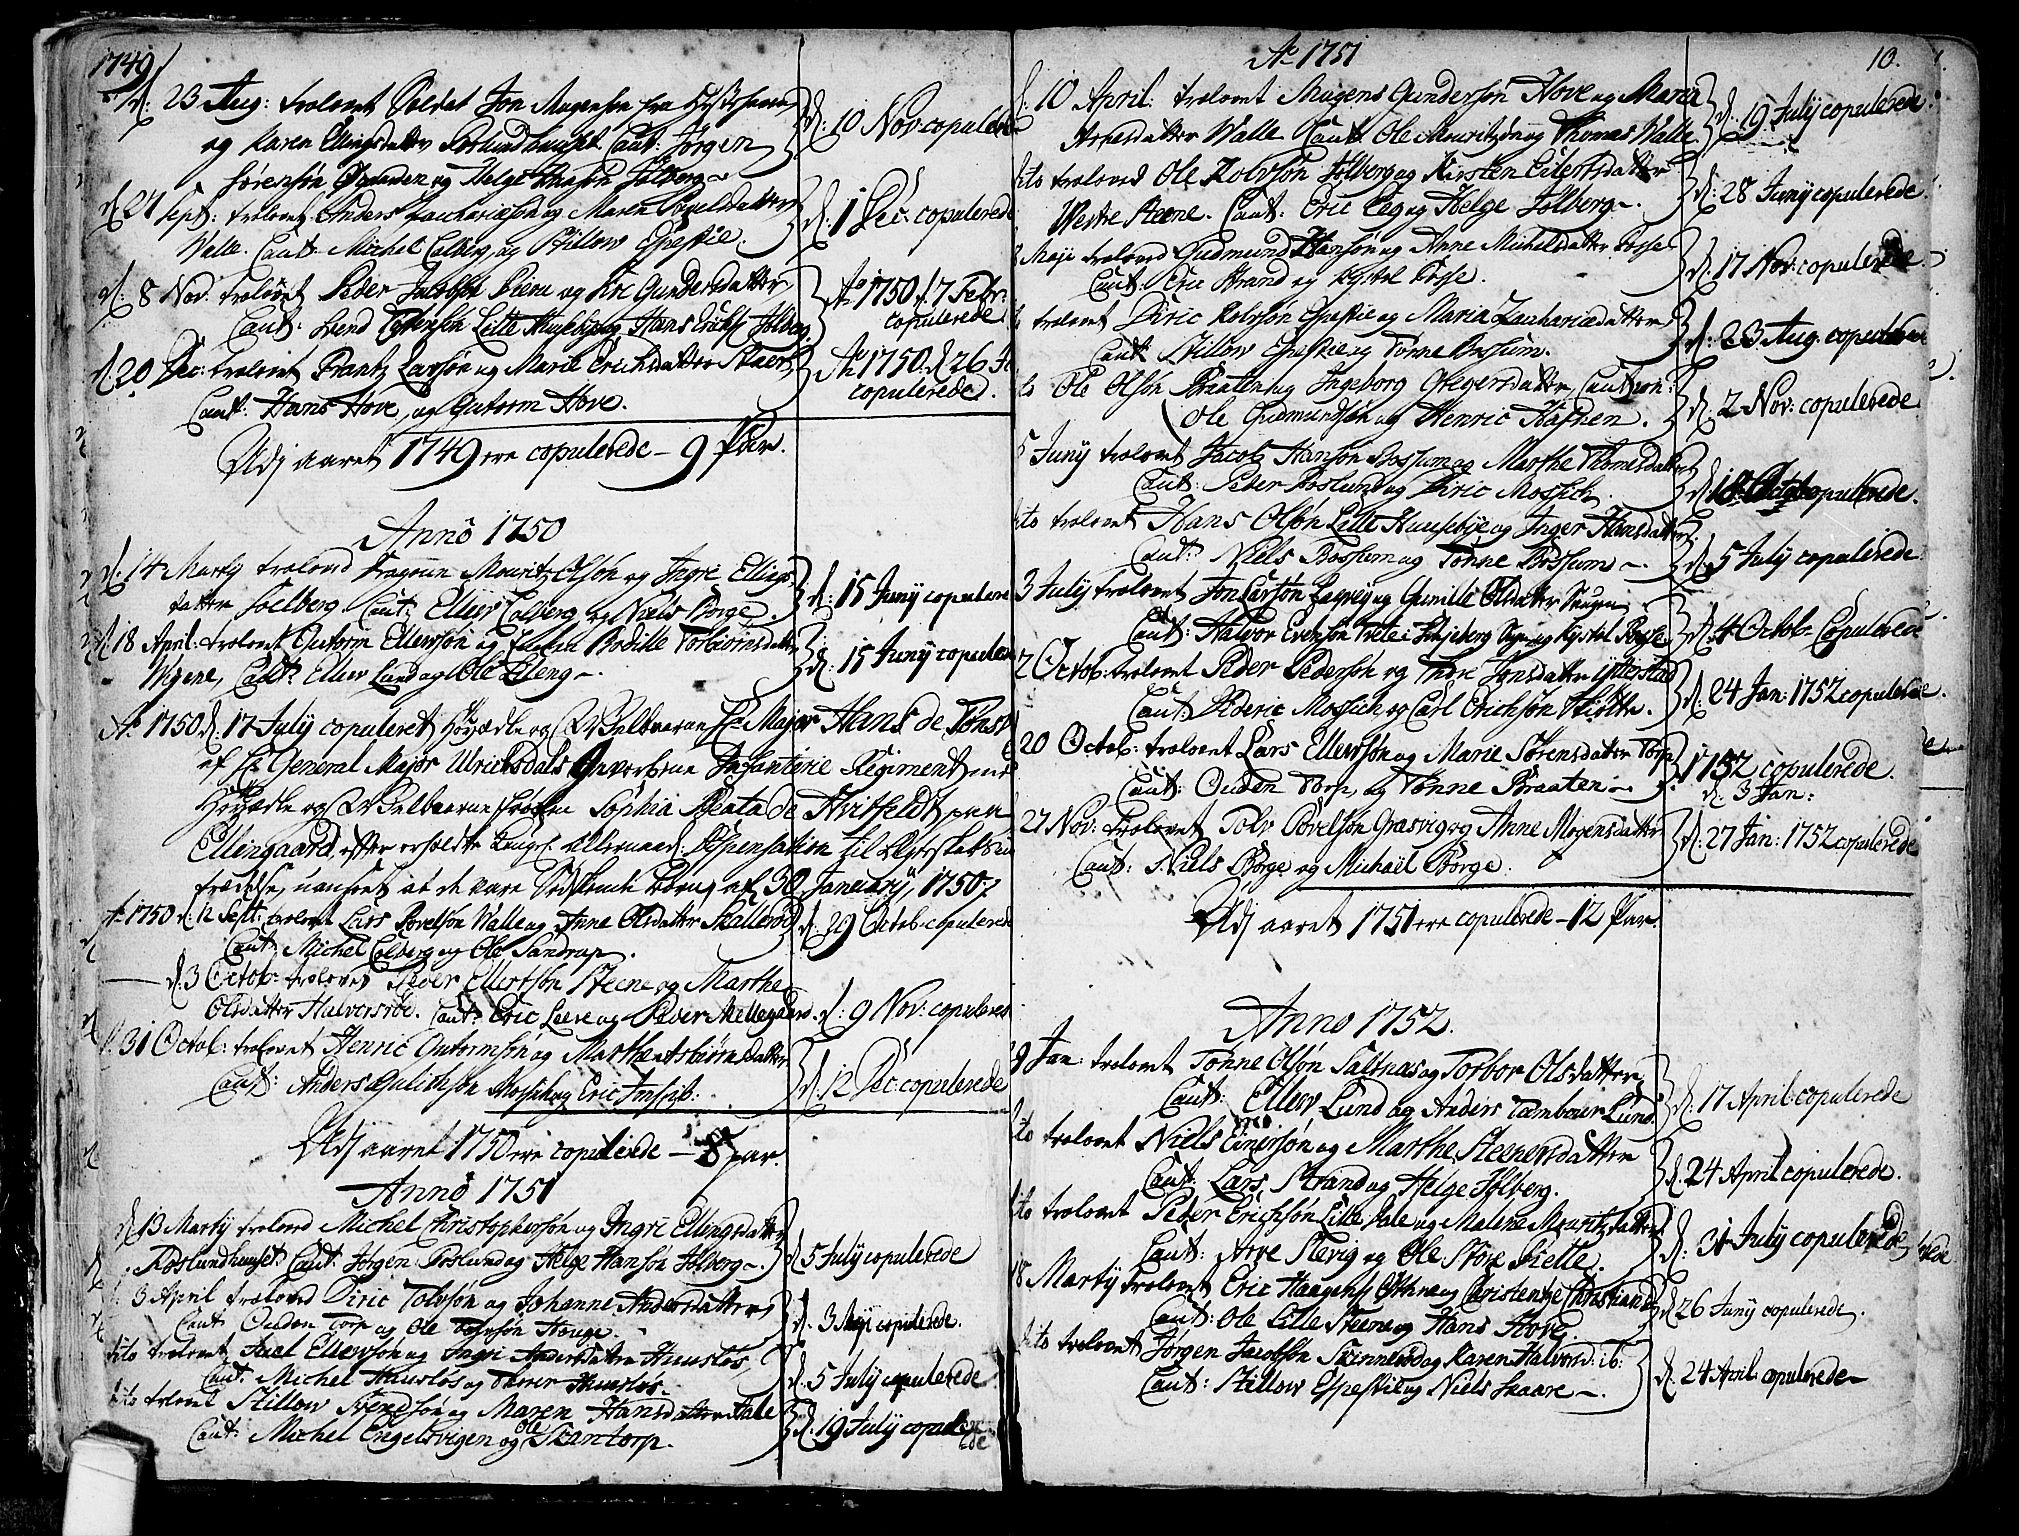 1749
d. 23 Aug: trolovet Soldat Jon Mogensøn fra
og Karen Ellingsdatter Roslundhuuset Caut: Jørgen
Sørensøn og Helge Hansøn Solberg
d. 10 Nov: copulerede
d. 27 Sept: trolovet Anders Zachariæsøn og Maren datter
Walle. Caut: Michel Colberg og Stillow Espestie.
d. 1 Dec: copulerede
d. 8 Nov: trolovet Peder Jacobsøn og Siri Gundersdatter
Caut: Svend Lille Huusebye og Hans Solberg
Ao 1750 d. 7 Febr: copulerede
d. 20 Dec: trolovet Frantz Larsøn og Marie Erichsdatter
Caut: Hans Hove, og Gutorm Hove.
Ao 1750. d. 26 copulerede.
Udj aaret 1749 ere copulerede – 9 Par.
Anno 1750
d. 14 Martij trolovd Dragoun Mouritz Olsøn og Ingri Ellings-
datter Soelberg. Caut: Ellew Colberg og Niels Borge
d. 15 Junij copulerede
d. 18 April: trolovet Gutorm Ellewsøn og Bodille Torbiørnsdatter
Caut: Ellew Lund og Ole Eleng
d. 15 Junij copulerede
Ao 1750 d. 17 July copuleret Høyædle og Velbaarne Hr Major Hans de
af Hr General Major Ulrichsdals Infanterie Regiment med
Høyædle og Velbaarne Frøken Sophia Beata de Hvitfeldt paa
Ellingaard, efter erholdte Kongl: allernaad: Dispensation til Ægteskabs
uanseet at de vare af 30 January 1750
Ao 1750 d. 12 Sept: trolovet Lars Povelsøn Walle og Anne Olsdatter Skallerød
Caut: Michel Colberg og Ole Sandrup.
d. 29 Octob: copulerede
d. 3 Octob: troloved Peder Ellertsøn Steene og Marthe
Olsdatter Halversrøe. Caut: Eric Leere og Peder Mellegaard.
d. 9 Nov: copulerede
d. 31 Octob: trolovet Henric Gutormsøn og Marthe datter
Caut: Anders Gulichsøn Mossich og Eric
d. 12 Dec: copulerede
Udj aaret 1750 ere copulerede – 8 par.
Anno 1751
d. 13 Martij trolovd Michel Christophersøn og Ingri Ellingsdatter
Roslundhuuset. Caut: Jørgen Roslund og Helge Hansøn Solberg
d. 5 July copulerede
d. 3 April trolovd Diric Tolvsøn og Johanne Andersdatter
Caut: Ouden Torp og Ole Tolvsøn Houge.
d. 3 Maji copulerede.
dito trolovet Juel Ellewsøn og Ingri Andersdatter Huusløs
Caut: Michel Huusløs og Huusløs.
d. 5 July copulerede
dito trolovet Stillow Svendsøn og Maren Hansdatter Hale
Caut: Michel Engelsvigen og Ole Skantorp.
d. 19 July copulerede
Ao 1751
10.
d. 10 April: trolovet Mogens Gundersøn Hove og Maren
Walle Caut: Ole Mouritzøn og Thomas Walle
d. 19 July copulerede
dito troloved Ole Rolvsøn Solberg og Kirsten Eilertsdatter
Westre Steene. Caut: Eric Eeg og Helge Solberg.
d. 28 Junij copulerede
Maji trolovd Gudmund Hansøn og Anne Michelsdatter Fosse
Caut: Eric Strand og Kystel Fosse.
d. 17 Nov: copulerede.
trolovet Diric Rolvsøn Espestie og Maria Zachariædatter
Caut: Stillow Espestie og Tønne Bossum.
d. 23 Aug. copulerede
Ole Olsøn Braaten og Ingeborg Gregersdatter, Caution:
Ole Gudmundsøn og Henric Hafnen.
d. 2 Nov: copulerede
5 Junij trolovet Jacob Hansøn Bossum og Marthe Thomesdatter
Caut: Peder Roslund og Diric Mossich.
d. copulerede.
dito trolovet Hans Olsøn Lille Huusebye og Inger Hansdatter
Caut: Niels Bossum og Tønne Bossum
d. 5 July copulerede
3 July trolovet Jon Larsøn og Gunille Olsdatter Haugen
Caut: Halvor Evensøn Tvete i Schjeberg Sogn og Kystel Fosse
d. 4 Octob: Copulerede
2 Octob: trolovet Peder Pedersøn og Thore Jonsdatter Ytterstad
Caut: Dideric Mossich og Carl Erichsøn Skotte.
d. 24 Jan: 1752 copulerede.
20 Octob: trolovet Lars Ellewsøn og Marie Sørensdatter Torp
Caut: Ouden Torp og Tønne Braaten
1752 copulerede. d. 3 Jan:
27 Nov: trolovet Tolv Povelsøn Græsvig og Anne Mogensdatter
Caut: Niels Borge og Michael Borge.
d. 27 Jan: 1752 copulerede
Udj aaret 1751 ere copulerede – 12 Par.
Anno 1752.
Jan: trolovet Tønne Olsøn Saltnæs og Torbor Olsdatter
Caut: Ellew Lund og Anders Tambour Lund
d. 17 April: copulerede
dito trolovet Niels Einersøn og Marthe Steenersdatter
Caut: Lars Strand og Helge Solberg.
d. 24 April copulerede.
dito trolovet Peder Erichsøn Lille Hale og Malene Mouritzdatter
Caut: Arve Slevig og Ole Store Kielle.
d. 31 July copulerede
18 Martij trolovet Eric Haagens: Østhne og Christentze Christians
Caut: Ole Lille Steene og Hans Hove
d. 26 Junij copulerede.
dito trolovet Jørgen Jacobsøn Skinnerød og Karen Halvorsd: ib:
Caut: Stillow Espestie og Niels Haare
d. 24 April copulerede